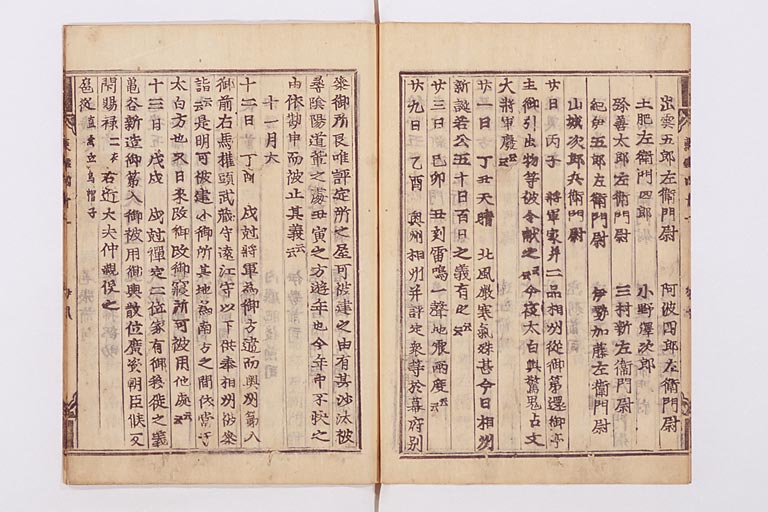 出雲五郎左衛門尉 阿波四郎左衛門尉
土肥左衛門四郎 小野澤次郎
弥善太郎左衛門尉 三村新左衛門尉
紀伊五郎左衛門尉 伊勢加藤左衛門尉
山城次郎兵衛門尉
廿日 丙子 將軍家并二品相州従御第還御亭
主御引出物等被令献之云云今夜太白與驚鬼占文
大將軍慶云云
廿一日 丁丑 天晴 北風厳寒氣殊甚今日相州
新誕若公五十百日之義有之云云
廿三日 己卯 丑刻雷鳴一聲地震兩度云云
廿九日 乙酉 奥州相州并評定衆等於幕府別
泰御所艮唯評定所之屋可被建之由有其沙汰被
尋陰陽道輩之處丑寅之方遊年也今年中不快之
由依勘申而被止其義云云
十一月大
十二日 丁酉 戌尅將軍為御方違而奥州第入
御前右馬權頭武藏守遠江守以下供奉相州被参
詣云云是明可被建小御所其地為南方之間依當于
太白方也又日来改御寝所可被用他處云云
十三日 戊戌 戌尅禪定二位家有御移徙之義
亀谷新造御第入御被用御輿散位廣資朝臣候反
閇賜禄二衣右近大夫仲親役之
邑從直垂立烏帽子